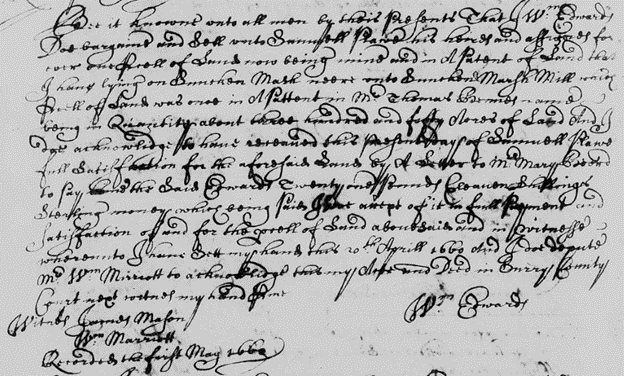 Bee it knowne unto all men by theis presents That I Wm Edwards
Doe bargaine and Sell unto Samuell Plawe his heires and assignes for
ever one p'cell of Land now being mine and in A Patent of Land that
I have lying on Suncken Mash neere unto Suncken Marsh Mill which
p'cell of Land was once in A Pattent in Mr Thomas Bennes name
being in Quantitity about three hundred and fifty Acres of Land And I
doe acknowledge to have received this present day of Samuell Plawe
full Satisfaction for the aforesaid Land by A Letter to Mrs Mary
to pay the Said Edwards Twenty one Pounds Eleaven Shillings
Sterling money which being paid I doe accept of it in full payment and
Satisfaction of and for the p'cell of Land abovesaid and in wittnesse
whereunto I have Sett my hand this 20th Aprill 1669 And I doe depute
Mr Wm Mirriott to acknowledge this my Acte and Deed in Surry County
Court next witnes my hand
Wm Edwards
Wittnes James Mason
Wm Marriott
Recorded the first May 1669